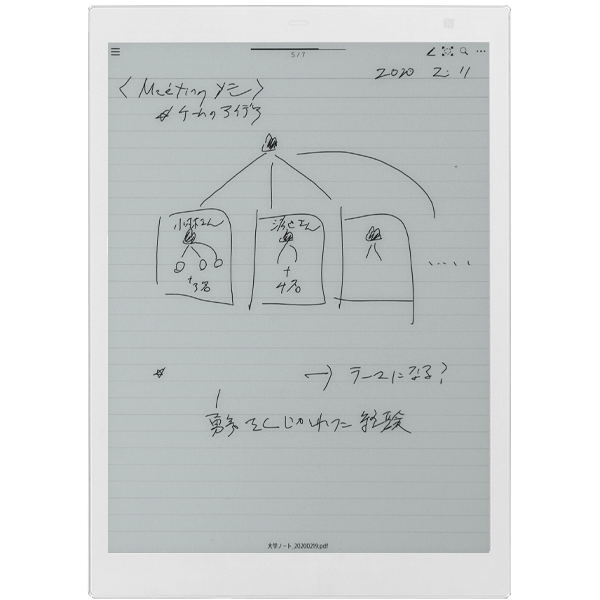 5 / 7
2020 2. 11
〈 Meeting メモ 〉
☆ チームのアイデア
小林さん
+3名
渡辺さん
+
4名
→ テーマになる?
☆
勇気をくじかれた経験
大学ノート_20200219.pdf